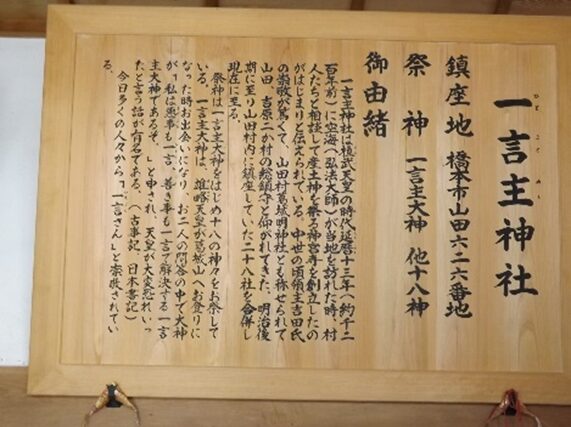 一言主神社
ひとことぬし
鎮座地 橋本市山田六二六番地
祭神 一言主大神 他十八神
御由緒
一言主神社は桓武天皇の時代延暦十三年(約千二
百年前)に空海(弘法大師)が当地を訪れた時、村
人たちと相談して産土神を祭る神宮寺を創立したの
がはじまりと伝えられている。中世の頃領主吉田氏
の崇敬が篤くて、山田村葛城明神社とも称せられて
山田、吉原二か村の総鎮守と仰がれてきた。明治後
期に至り山田村内に鎮座していた二十八社を合併し
現在に至る。
祭神は一言主大神をはじめ十八の神々をお祭して
いる。一言主大神は、雄略天皇が葛城山へお登りに
なった時お出会いになり、お二人の問答の中で大神
が「私は悪事も一言、善き事も一言で解決する一言
主大神であるぞ。」と申され、天皇が大変恐れいっ
たと言う話が有名である。(古事記、日本書記)
今日多くの人々から「一言さん」と崇敬されてい
る。